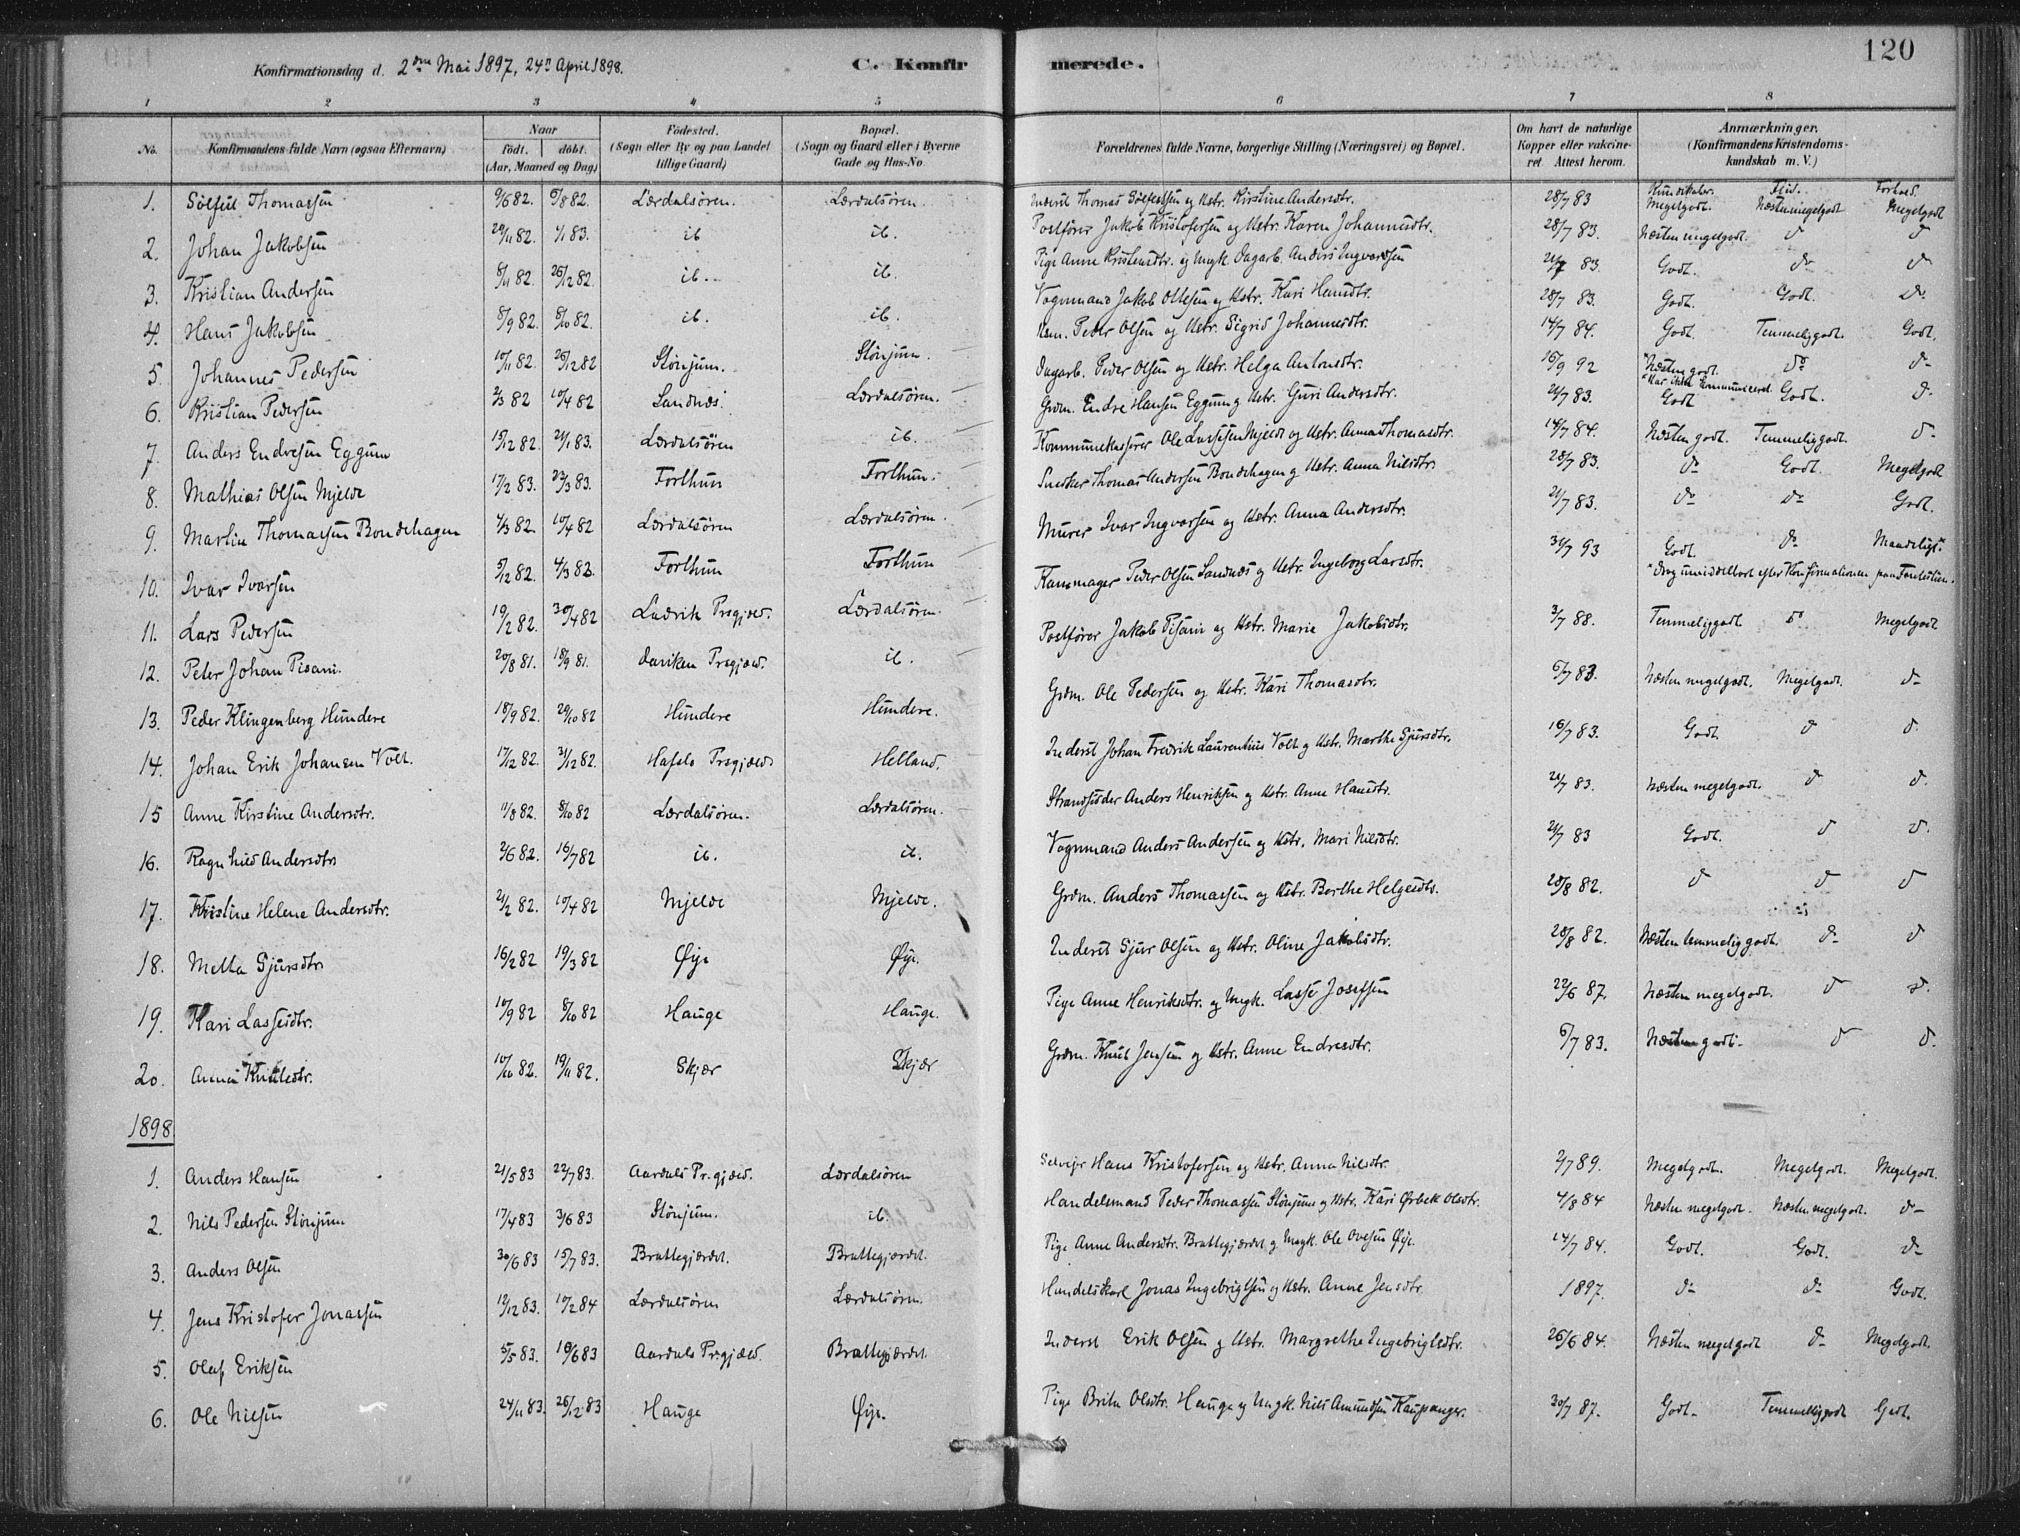 Konfirmationsdag d. 2den Mai 1897, 24de April 1898.
C. Konfirmerede.
120
1 2 3 4 5 6 7 8
No. Konfirmandens fulde Navn (ogsaa Efternavn) Naar født. døbt. (Aar, Maaned og Dag) Födested. (Sogn eller By og paa Landet tillige Gaard) Bopæl. (Sogn og Gaard eller i Byerne Gade og Hus-No. Forældrenes fulde Navne, borgerlige Stilling (Næringsvei) og Bopæl. Om havt de naturlige Kopper eller vakcineret Attest herom. Anmærkninger. (Konfirmandens Kristendomskundskab m. V.)
Kundskaber. Flid. Forhold.
1. Thomassen 9/6 82. 6/8 82. Lærdalsören. Lærdalsören. Inderst Thomas og Hstr. Kirstine Andersdtr. 28/7 83 Megetgodt. Næsten megetgodt Megetgodt
2. Johan Jakobsen 29/11 82. 1/1 83. ib ib. Postförer Jakob Kristofersen og Hstr. Karen Johannesdtr. 28/7 83. Næsten megetgodt. do do
3. Kristian Andersen 8/11 82. 26/12 82. ib. ib. Pige Anne Kristensdtr. og Ungk. Dagarb. Anders Ingvardsen 21/7 83. Godt. do do
4. Hans Jakobsen 8/9 82. 8/10 82. ib. ib. Vognmand Jakob Ottesen og Hstr. Kari Hansdtr. 28/7 83. Godt. Godt. do
5. Johannes Pedersen 10/11 82. 26/12 82 Stönjum. Stönjum. Hsm. Peder Olsen og Hstr. Sigrid Johannesdtr. 14/7 84. Godt. Temmeliggodt. Godt.
6. Kristian Pedersen 2/3 82 10/4 82 Sandnes. Lærdalsören. Dagarb. Peder Olsen og Hstr. Helga Antonsdtr. 16/9 92 Næsten godt. do do
Har ikke kommuniceret.
7. Anders Endresen Eggum 15/12 82. 21/1 83. Lærdalsören ib. Grdm. Endre Hansen Eggum og Hstr. Guri Andersdtr. 21/7 83. Godt Godt. do
8. Mathias Olsen Mjelde 17/2 83. 23/3 83. Forthun Forthun. Kommunekasserer Ole Lassesen Mjelde og Hstr. Anna Thomasdtr. 14/7 84. Næsten godt. Temmeliggodt. do
9. Martin Thomassen Bondehagen 4/3 82. 10/4 82 Lærdalsören Lærdalsören. Snedker Thomas Andersen Bondehagen og Hstr. Anna Nilsdtr. 28/7 83. do Godt. Megetgodt
10. Ivar Ivarsen 5/12 82. 4/3 83. Forthun Forthun Murer Ivar Ingvarsen og Hstr. Anna Andersdtr. 21/7 83. do do Godt.
11. Lars Pedersen 19/2 82. 30/4 82 Ladvik Prsgjæld. Lærdalsören. Kammager Peder Olsen Sandnes og Hstr. Ingeborg Larsdtr. 31/7 93 Godt. do Maadeligt.
Drog umiddelbart efter Konfirmationen paa Fantestien.
12. Peter Johan Pisani. 20/8 81. 18/9 81. Daviken Prsgjæld. ib. Postförer Jakob Pisani og Hstr. Marie Jakobsdtr. 3/7 88. Temmeliggodt do Megetgodt
13. Peder Klingenberg Hundere 18/9 82. 29/10 82 Hundere Hundere. Grdm. Ole Pedersen og Hstr. Kari Thomasdtr. 6/7 83. Næsten megetgodt. Megetgodt. do
14. Johan Erik Johansen Volt. 17/12 82. 31/12 82. Hafslo Prsgjæld Helland. Inderst Johan Fredrik Laurentius Volt og Hstr. Marthe Sjursdtr. 16/7 83. Godt. do do
15 Anne Kirstine Andersdtr. 11/8 82. 8/10 82 Lærdalsören. Lærdalsören. Strandsidder Anders Henriksen og Hstr. Anne Hansdtr. 21/7 83. Næsten megetgodt. do do
16. Ragnhild Andersdtr 2/6 82. 16/7 82 ib. ib. Vognmand Anders Andersen og Hstr. Mari Nilsdtr. 21/7 83 Godt. do do.
17. Kristine Helene Andersdtr. 21/2 82. 10/4 82 Mjelde Mjelde. Grdm. Anders Thomassen og Hstr. Berthe Helgesdtr. 28/8 82. do do do
18. Metta Sjursdtr 16/2 82 19/3 82 Øye Øye. Inderst Sjur Olsen og Hstr. Oline Jakobsdtr. 28/8 82. Næsten temmelig godt. do do
19. Kari Lassesdtr. 10/9 82 8/10 82 Hauge Hauge. Pige Anne Henriksdtr. og Ungk. Lasse Josefsen 22/6 87. Næsten megetgodt. do do.
20. Anna Knutsdtr. 10/10 82. 19/11 82. Skjær Skjær Grdm. Knut Jensen og Hstr. Anne Endresdtr. 6/7 83. Næsten godt. do do.
1898
1. Anders Hansen 21/5 83 22/7 83. Aardals Pr.gjæld. Lærdalsören Selveier Hans Kristofersen og Hstr. Anna Nilsdtr. 2/7 89. Megetgodt. Megetgodt. Megetgodt.
2. Nils Pedersen Stönjum 17/4 83 3/6 83 Stönjum. ib. Handelsmand Peder Thomassen Stönjum og Hstr. Kari Ørbek Olsdtr. 4/8 84 Næsten megetgodt. Næsten megetgodt. do
3. Anders Olsen 30/6 83 15/7 83. Brattegjærdet. Brattegjærdet. Pige Anne Andersdtr. Brattegjærdet og Ungk. Ole Ovesen Øye. 14/7 84. Godt. Godt. do
4. Jens Kristofer Jonassen 12/12 83. 10/2 84 Lærdalsören Lærdalsören. Handelskarl Jonas Ingebrigtsen og Hstr. Anne Jensdtr. 1897. do do Godt.
5. Olaf Eriksen 5/5 83. 10/6 83 Aardals Pr.gjæld. Brattegjærdet Inderst Erik Olsen og Hstr. Margrethe Ingebrigtsdtr. 26/6 84. Næsten megetgodt do Megetgodt.
6. Ole Nilsen 24/11 83. 26/12 83 Hauge Øye. Pige Brita Olsdtr. Hauge og Ungk. Nils Amundsen Kaupanger. 30/7 87. Godt. Temmeliggodt Godt.